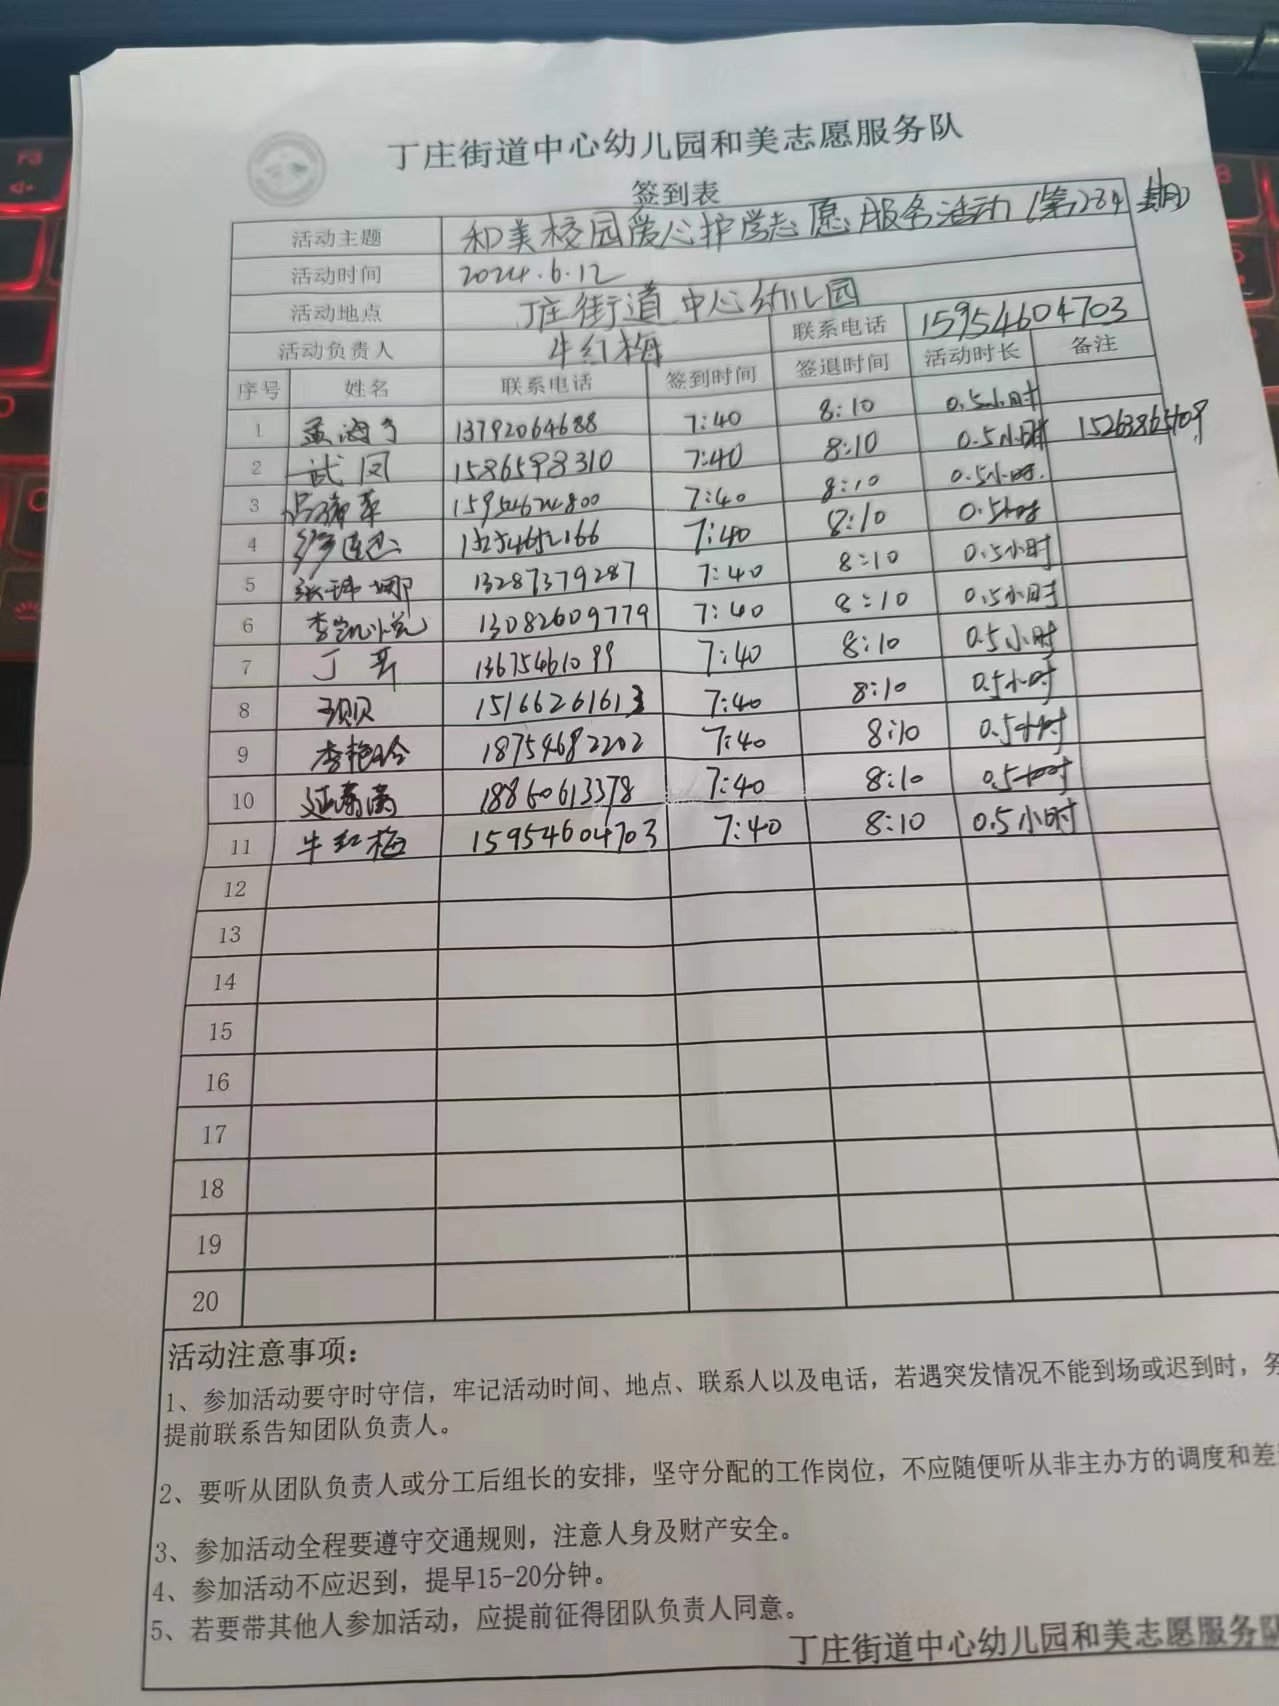 丁庄街道中心幼儿园和美志愿服务队
签到表
活动主题 和美校园爱心护学志愿服务活动(第284期)
活动时间 2024.6.12
活动地点 丁庄街道中心幼儿园
活动负责人 牛红梅 联系电话 15954604703
序号 姓名 联系电话 签到时间 签退时间 活动时长 备注
1 13792064688 7:40 8:10 0.5小时
2 武凤 1586598310 7:40 8:10 0.5小时
3 15954624800 7:40 8:10 0.5小时.
4 7:40 8:10 0.5小时
5 张珠娜 13287379287 7:40 8:10 0.5小时
6 李凯悦 13082609779 7:40 8:10 0.5小时
7 13675461099 7:40 8:10 0.5小时
8 15166261613 7:40 8:10 0.5小时
9 李艳玲 18754682202 7:40 8:10 0.5小时
10 18860613378 7:40 8:10 0.5小时
11 牛红梅 15954604703 7:40 8:10 0.5小时
12
13
14
15
16
17
18
19
20
活动注意事项:
1、参加活动要守时守信,牢记活动时间、地点、联系人以及电话,若遇突发情况不能到场或迟到时,务
提前联系告知团队负责人。
2、要听从团队负责人或分工后组长的安排,坚守分配的工作岗位,不应随便听从非主办方的调度和差
3、参加活动全程要遵守交通规则,注意人身及财产安全。
4、参加活动不应迟到,提早15-20分钟。
5、若要带其他人参加活动,应提前征得团队负责人同意。
丁庄街道中心幼儿园和美志愿服务队